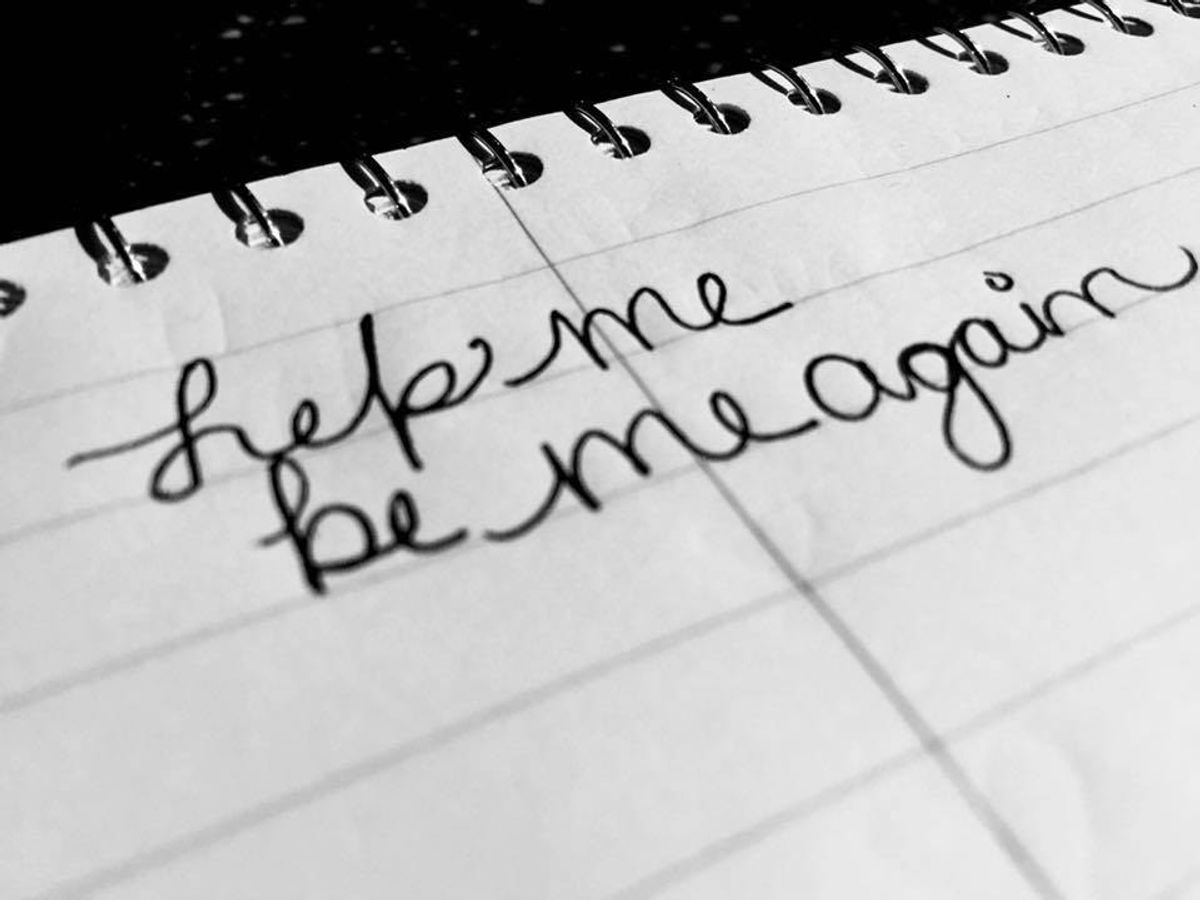 help me
be me again